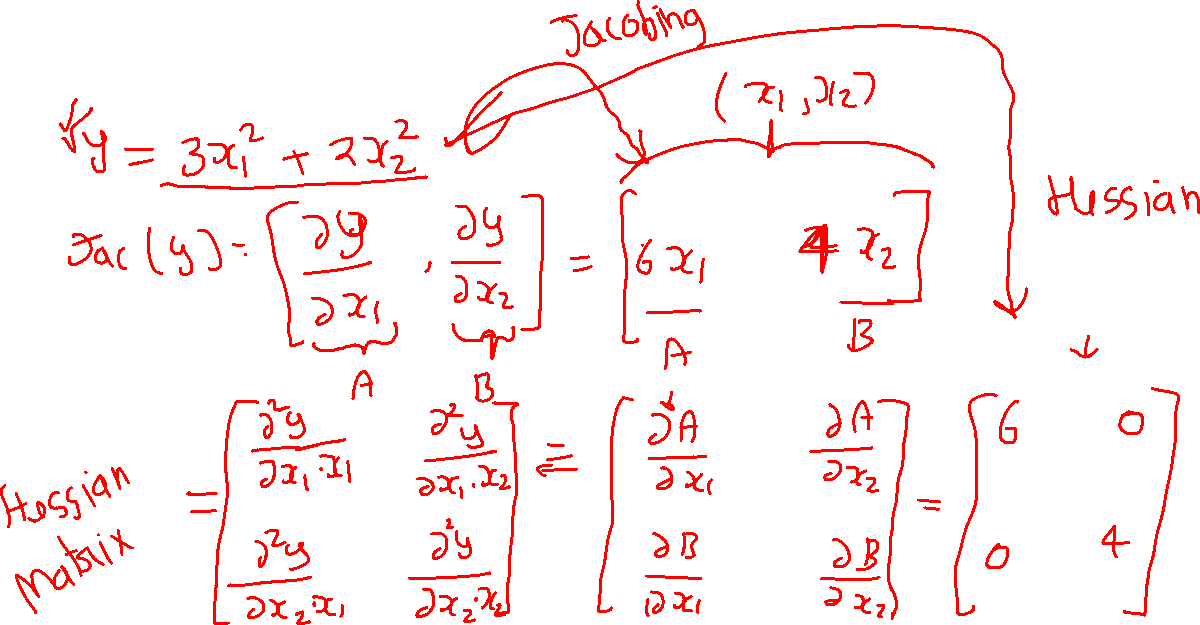 Jacobing
(x₁, x₂)
√y = 3x₁² + 2x₂²
Hessian
Jac(y) = [∂y/∂x₁, ∂y/∂x₂] = [6x₁ 4x₂]
A B A B
Hessian Matrix
= [∂²y/∂x₁·x₁ ∂²y/∂x₁·x₂] = [∂A/∂x₁ ∂A/∂x₂] = [6 0]
[∂²y/∂x₂·x₁ ∂²y/∂x₂·x₂] [∂B/∂x₁ ∂B/∂x₂] [0 4]